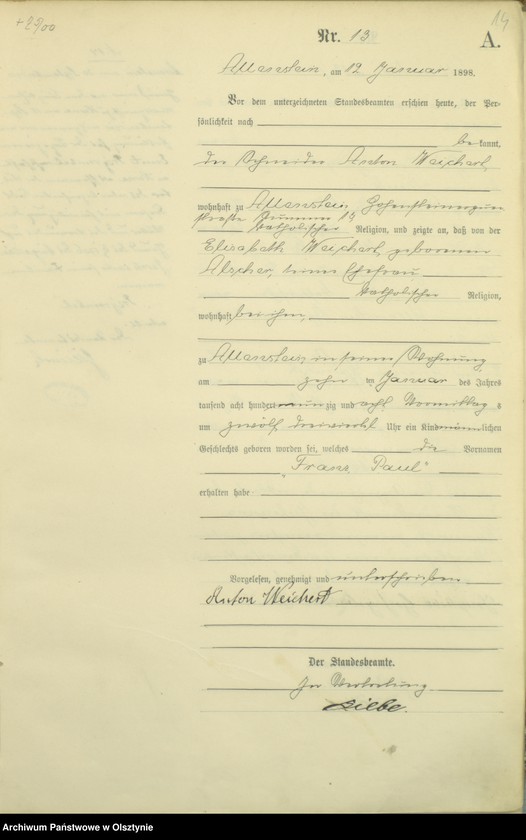 +2900
14
Nr. 13
A.
Allenstein, am 12 Januar 1898.
Vor dem unterzeichneten Standesbeamten erschien heute, der Per-
sönlichkeit nach
be kannt,
der Schneider Anton Weichert,
wohnhaft zu Allenstein, Hohensteinerquer
straße Nummer 14
katholischer Religion, und zeigte an, daß von der
Elisabeth Weichert, geborenen
seiner Ehefrau
katholischer Religion,
wohnhaft bei ihm,
zu Allenstein in seiner Wohnung
am zehn ten Januar des Jahres
tausend acht hundert neun zig und acht Vormittag s
um zwölf dreiviertel Uhr ein Kind männlichen
Geschlechts geboren worden sei, welches die Vornamen
"Franz Paul"
erhalten habe
Vorgelesen, genehmigt und unterschrieben
Anton Weichert
Der Standesbeamte.
In Vertretung
Archiwum Państwowe w Olsztynie